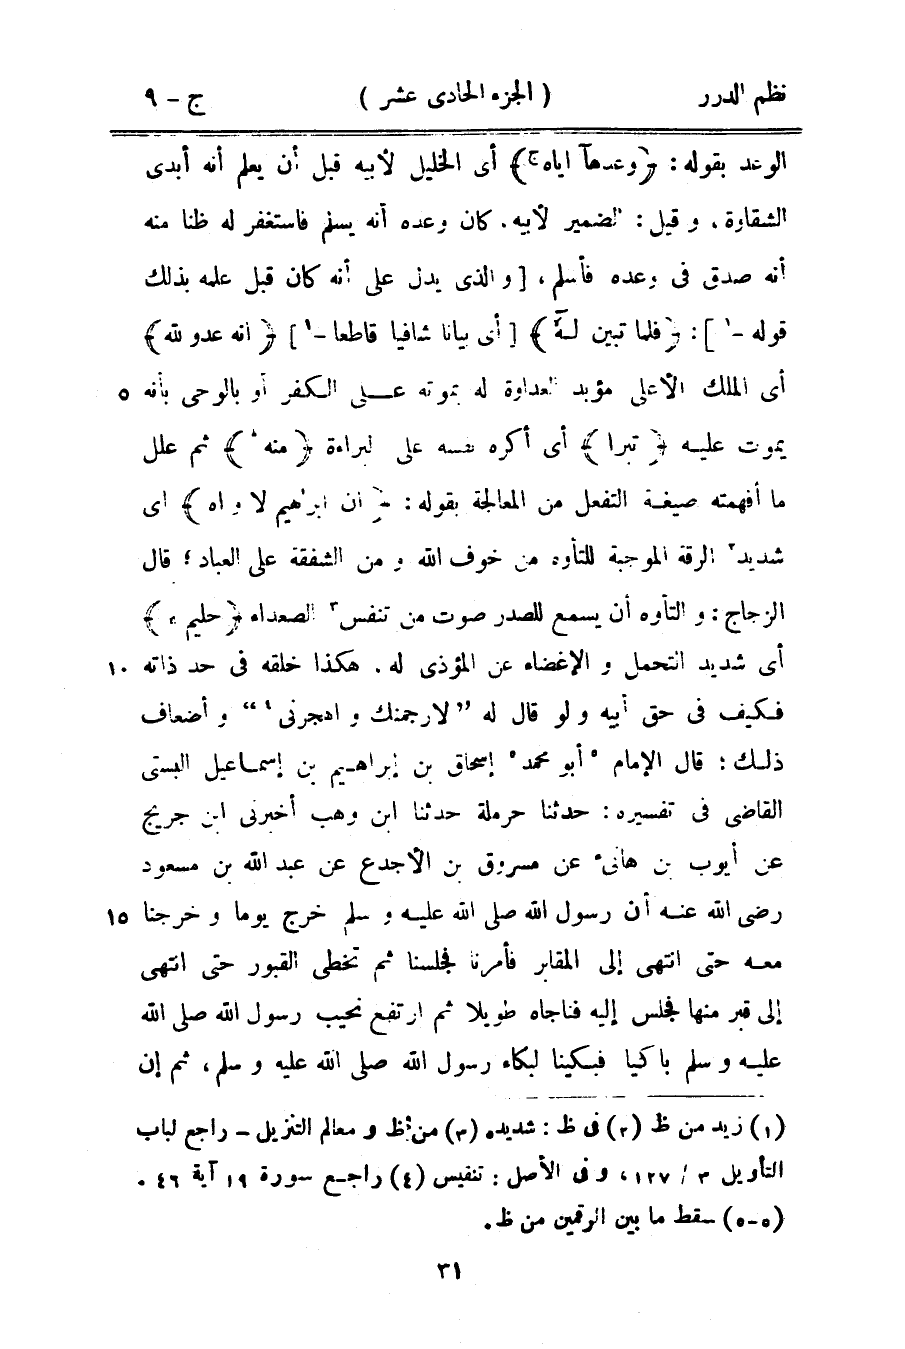 نظم الدرر ( الجزء الحادى عشر ) ج - ٩
الوعد بقوله : ﴿ وعدهآ اياه ج ﴾ أى الخليل لأبيه قبل أن يعلم أنه أبدى
الشقاوة ، و قيل : الضمير لأبيه . كان وعده أنه يسلم فاستغفر له ظنا منه
أنه صدق فى وعده فأسلم ، [ و الذى يدل على أنه كان قبل علمه بذلك
قوله - ١ ] : ﴿ فلما تبين لهٓ ﴾ [ أى بيانا شافيا قاطعا - ١ ] ﴿ انه عدو لله ﴾
أى الملك الأعلى مؤبد العداوة له بموته على الكفر أو بالوحى بأنه ٥
يموت عليه ﴿ تبرا ﴾ أى أكره نفسه على البراءة ﴿ منه ط ﴾ ثم علل
ما أفهمته صيغة التفعل من المعالجة بقوله : ﴿ ان ابرٰهيم لاواه ﴾ اى
شديد٢ الرقة الموجبة للتأوه من خوف الله و من الشفقة على العباد ؛ قال
الزجاج : و التأوه أن يسمع للصدر صوت من تنفس٣ الصعداء ﴿ حليم ه ﴾
أى شديد التحمل و الإغضاء عن المؤذى له . هكذا خلقه فى حد ذاته ١٠
فكيف فى حق أبيه و لو قال له ” لارجمنك و اهجرنى ٤ “ و أضعاف
ذلك : قال الإمام ٥ أبو محمد ٥ إسحاق بن إبراهيم بن إسماعيل البستى
القاضى فى تفسيره : حدثنا حرملة حدثنا ابن وهب أخبرنى ابن جريج
عن أيوب بن هانئ عن مسروق بن الأجدع عن عبد الله بن مسعود
رضى الله عنه أن رسول الله صلى الله عليه و سلم خرج يوما و خرجنا ١٥
معه حتى انتهى إلى المقابر فأمرنا فجلسنا ثم تخطى القبور حتى انتهى
إلى قبر منها فجلس إليه فناجاه طويلا ثم ارتفع نحيب رسول الله صلى الله
عليه و سلم باكيا فبكينا لبكاء رسول الله صلى الله عليه و سلم ، ثم إن
(١) زيد من ظ (٢) فى ظ : شديده (٣) من ظ و معالم التنزيل - راجع لباب
التأويل ٣ / ١٢٧ ، و فى الأصل : تنفيس (٤) راجع سورة ١٩ آية ٤٦ .
(٥-٥) سقط ما بين الرقمين من ظ .
٣١